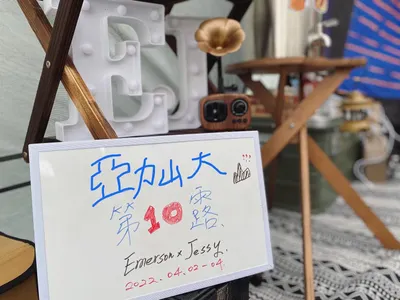 EJ
亞力山大
第10露
Emerson x Jessy.
2022.04.02-04.